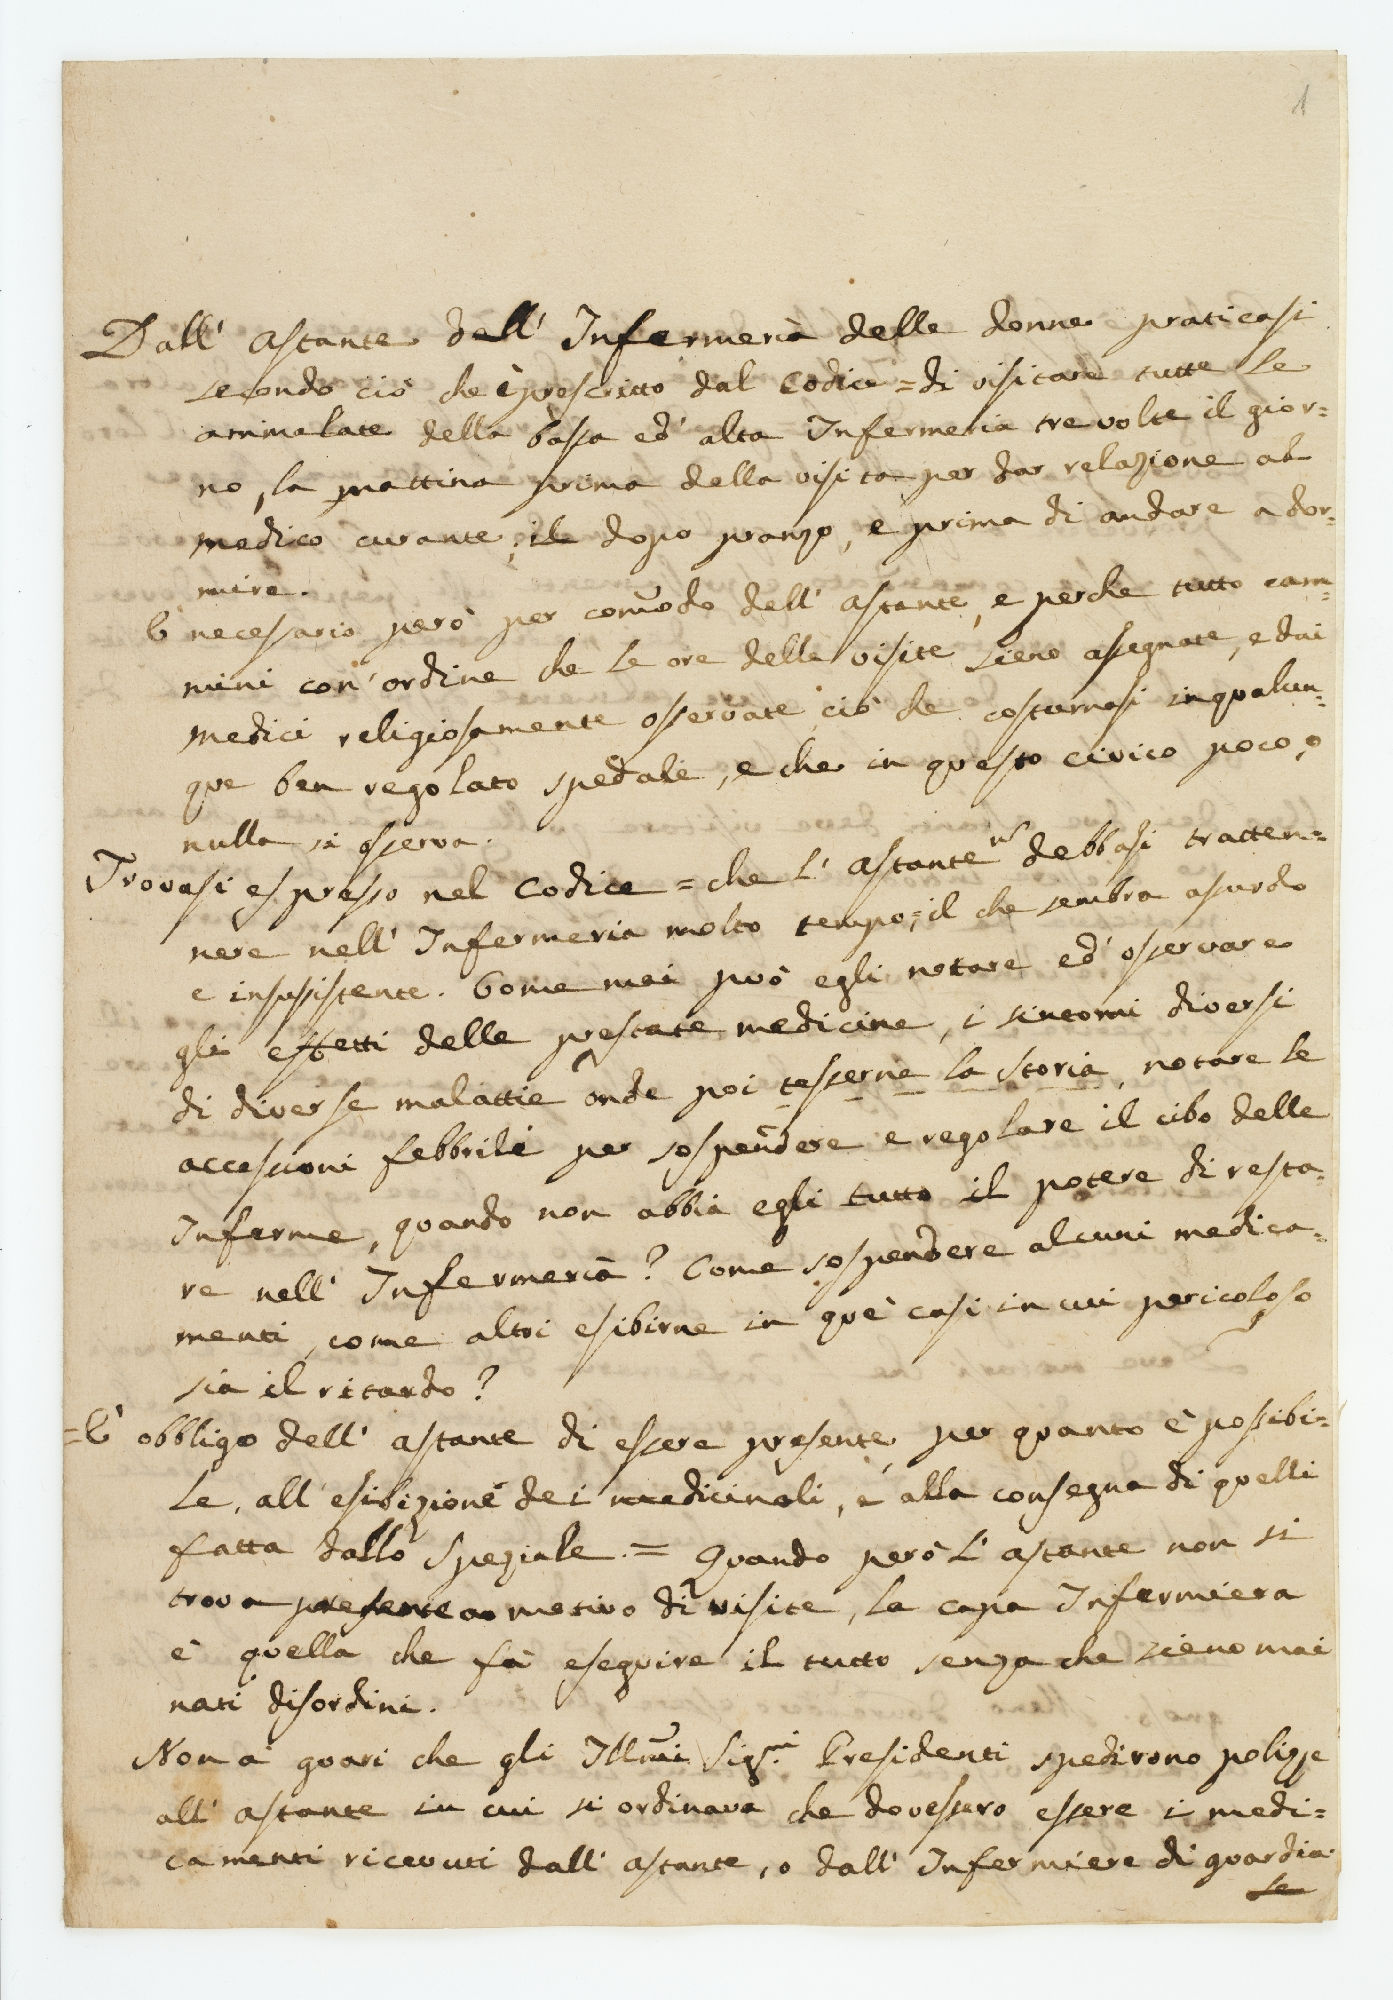 1
Dall' astante dell' Infermeria delle donne praticasi
secondo ciò che è prescritto dal Codice = di visitare tutte le
ammalate della bassa ed' alta Infermeria tre volte il gior=
no, la mattina prima della visita per dar relazione al
medico curante, il dopo pranzo, e prima di andare a dor=
mire.
È necessario però per comodo dell' astante, e perche tutto cam=
mini con' ordine che le ore delle visite sieno assegnate, e dai
medici religiosamente osservate ciò che costumasi in qualun=
que ben regolato spedale, e che in questo civico poco, o
nulla si osserva.
Trovasi espresso nel Codice = che l' astante debbasi tratten=
nere nell' Infermeria molto tempo, = il che sembra assurdo
e insussistente. Come mai può egli notare ed' osservare
gli effetti delle prestate medicine, i sintomi diversi
di diverse malattie onde poi tesserne la storia, notare le
accessioni febbrili per sospendere e regolare il cibo delle
Inferme, quando non abbia egli tutto il potere di resta=
re nell' Infermeria? Come sospendere alcuni medica=
menti, come altri esibirne in què casi in cui pericoloso
sia il ritardo?
= È obbligo dell' astante di essere presente, per quanto è possibi=
le, all' esibizione dei medicinali, e alla consegna di quelli
fatta dallo Speziale. = Quando però l' astante non si
trova presente a motivo di visite, la capa Infermiera
è quella che fà eseguire il tutto senza che sieno mai
nati disordini.
Non à guari che gli Illmi Sigri Presidenti spedirono polizze
all' astante in cui si ordinava che dovessero essere i medi=
camenti ricevuti dall' astante, o dall' Infermiere di guardia.
se